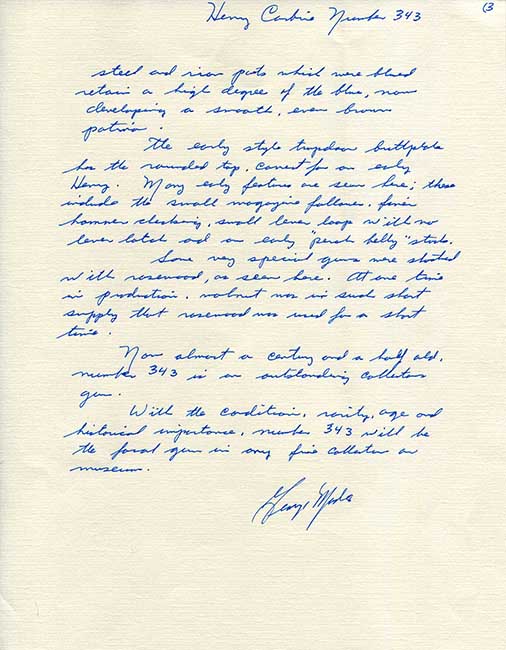 Henry Carbine Number 343
(3
steel and iron parts which were blued
retain a high degree of the blue, now
developing a smooth, even brown
patina.
The early style trapdoor buttplate
has the rounded top, correct for an early
Henry. Many early features are seen here; these
include the small magazine follower, finer
hammer checking, small lever loop with no
lever latch and an early "perch belly" stock.
Some very special guns were stocked
with rosewood, as seen here. At one time
in production, walnut was in such short
supply that rosewood was used for a short
time.
Now almost a century and a half old,
number 343 is an outstanding collectors
gun.
With the condition, rarity, age and
historical importance, number 343 will be
the focal gun in any fine collection or
museum.